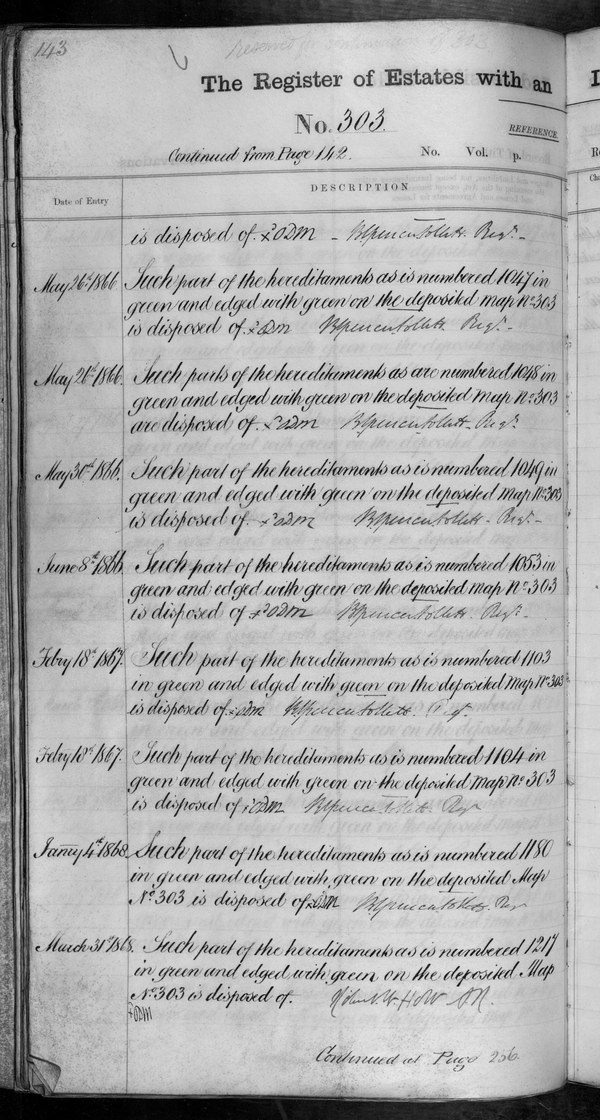 143
The Register of Estates with an
No. 303.
REFERENCE.
Continued from Page 142.
No. Vol. p.
Date of Entry
DESCRIPTION
is disposed of. ODM - Regr.-
May 26th 1866. Such part of the hereditaments as is numbered 1047 in
green and edged with green on the deposited map No 303
is disposed of. ODM Regr.-
May 26th 1866. Such parts of the hereditaments as are numbered 1048 in
green and edged with green on the deposited map No 303
are disposed of. ODM Regr.
May 30th 1866. Such part of the hereditaments as is numbered 1049 in
green and edged with green on the deposited map No 303
is disposed of. ODM Regr.-
June 8th 1866. Such part of the hereditaments as is numbered 1053 in
green and edged with green on the deposited map No 303
is disposed of ODM Regr.-
Febry 18th 1867. Such part of the hereditaments as is numbered 1103
in green and edged with green on the deposited Map No 303
is disposed of. ODM
Febry 18th 1867. Such part of the hereditaments as is numbered 1104 in
green and edged with green on the deposited map No 303
is disposed of ODM Regr
Janry 4th 1868. Such part of the hereditaments as is numbered 1180
in green and edged with green on the deposited Map
No. 303 is disposed of. ODM Regr
March 31st 1868. Such part of the hereditaments as is numbered 1217
in green and edged with green on the deposited Map
No. 303 is disposed of.
ODM
Continued at Page 256.